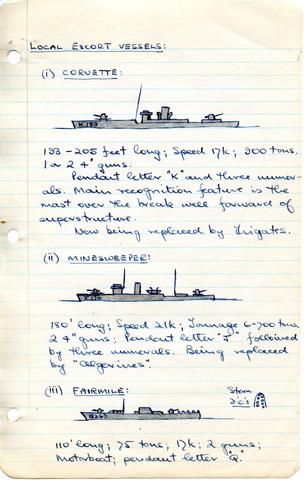 LOCAL ESCORT VESSELS:
(i) CORVETTE:
K 183
193-205 feet long; Speed 17k; 900 tons.
1 or 2 4" guns.
Pendant letter "K" and three numer-
als. Main recognition feature is the
mast over the break well forward of
superstructure.
Now being replaced by frigates.
(ii) MINESWEEPER:
180' long; Speed 21k; Tonnage 6-700 tons
2 4" guns; Pendant letter "J" followed
by three numerals. Being replaced
by "Algerines".
(iii) FAIRMILE:
Stern
D'c's
110' long; 75 tons; 17k; 2 guns;
Motorboat; pendant letter "Q".